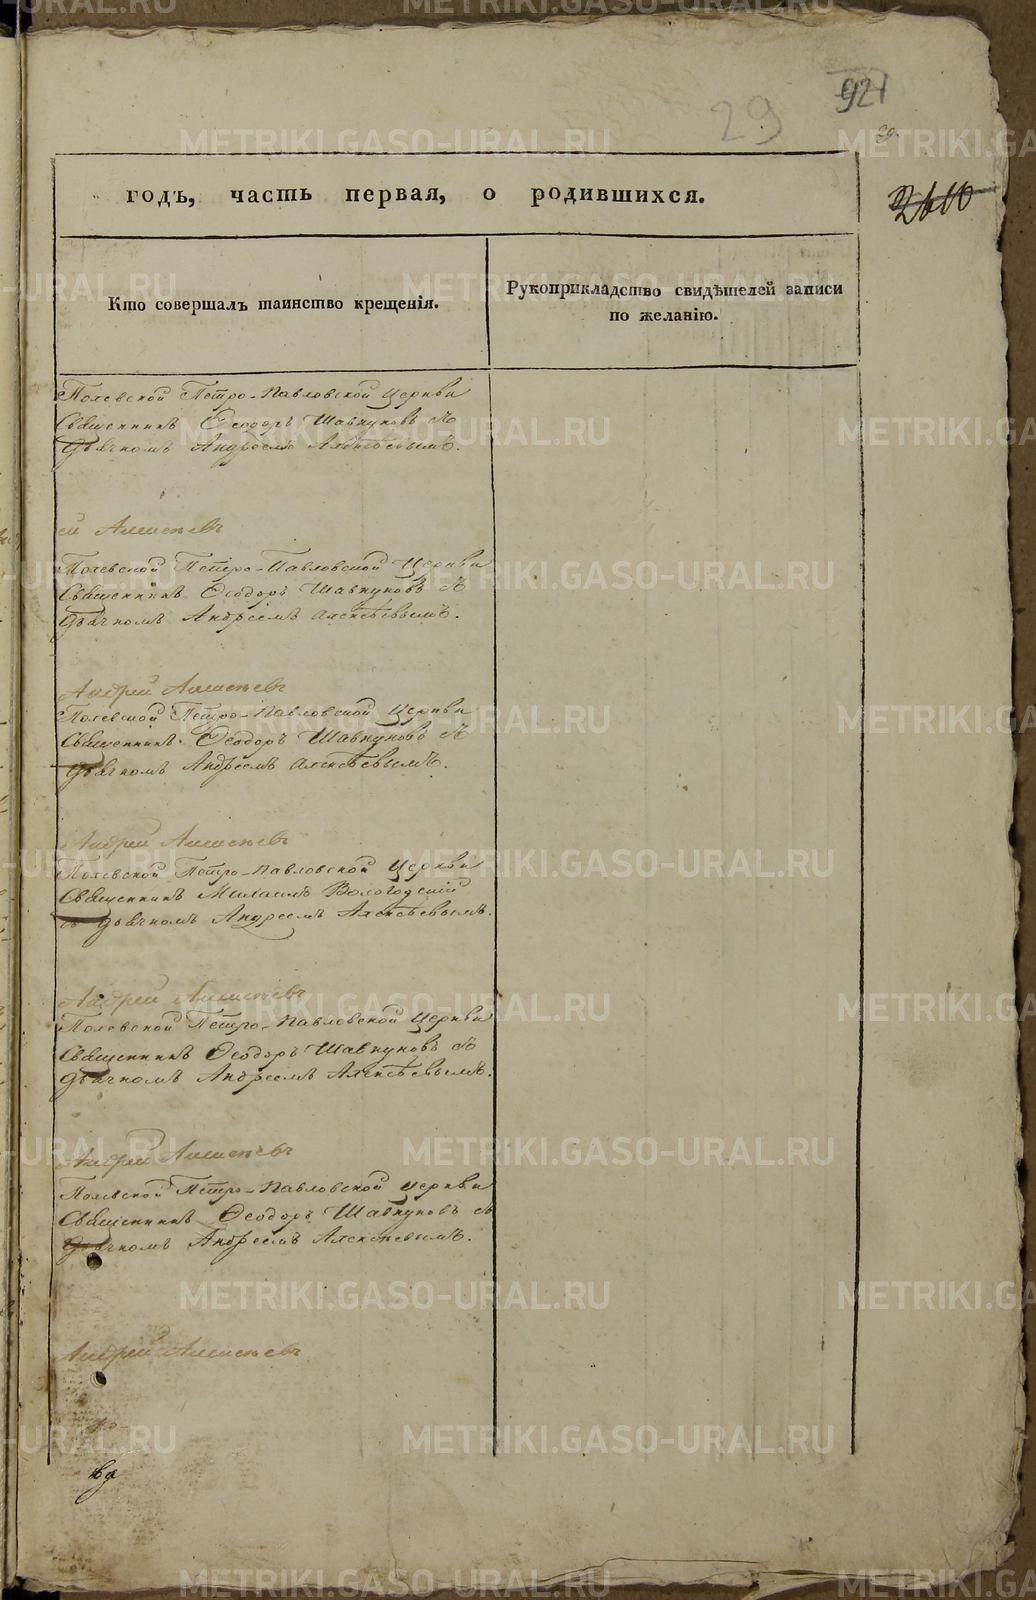 29
921
29.
годъ, часть первая, о родившихся.
Кто совершалъ таинство крещенія.
Рукоприкладство свидѣтелей записи
по желанію.
Полевской Петро-Павловской Церкви
Священникъ Ѳеодоръ Шавкуновъ съ
Дьячкомъ Андреемъ Алексѣевымъ.
ей Алексѣевъ
Полевской Петро-Павловской Церкви
Священникъ Ѳеодоръ Шавкуновъ съ
Дьячкомъ Андреемъ Алексѣевымъ.
Андрей Алексѣевъ
Полевской Петро-Павловской Церкви
Священникъ Ѳеодоръ Шавкуновъ съ
Дьячкомъ Андреемъ Алексѣевымъ.
Андрей Алексѣевъ
Полевской Петро-Павловской Церкви
Священникъ Михаилъ Вологодскій
съ Дьячкомъ Андреемъ Алексѣевымъ.
Андрей Алексѣевъ
Полевской Петро-Павловской Церкви
Священникъ Ѳеодоръ Шавкуновъ съ
Дьячкомъ Андреемъ Алексѣевымъ.
Андрей Алексѣевъ
Полевской Петро-Павловской Церкви
Священникъ Ѳеодоръ Шавкуновъ съ
Дьячкомъ Андреемъ Алексѣевымъ.
Андрей Алексѣевъ
METRIKI.GASO-URAL.RU